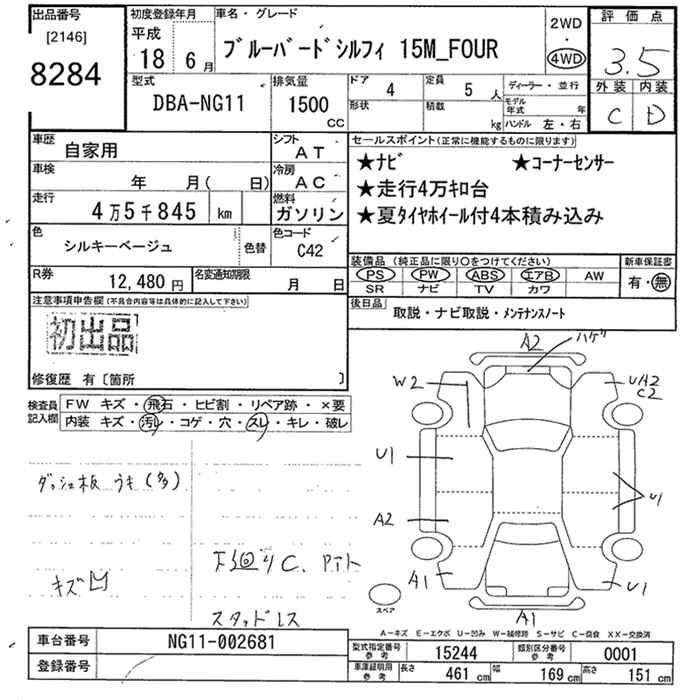 出品番号
[2146]
8284
初度登録年月
平成
18 6月
車名・グレード
ブルーバードシルフィ 15M_FOUR
2WD
・
4WD
評価点
3.5
外装 内装
C D
型式
DBA-NG11
排気量
1500
CC
ドア
4
定員
5 人
形状
積載
kg
ディーラー・並行
モデル年式 年
ハンドル 左・右
車歴
自家用
シフト
AT
車検
年 月( 日)
冷房
AC
走行
4万5千845 km
燃料
ガソリン
色
シルキーベージュ
色替
色コード
C42
R券
12,480円
名変通知期限
月 日
セールスポイント(正常に機能するものに限り)
★ナビ ★コーナーセンサー
★走行4万キロ台
★夏タイヤホイール付4本積み込み
装備品 (純正品に限り〇をつけてください)
PS PW ABS エアB AW
SR ナビ TV カワ
新車保証書
有・無
後日品
取説・ナビ取説・メンテナンスノート
注意事項申告欄(不具合内容等は具体的に記入して下さい)
初出品
修復歴 有〔箇所 〕
検査員記入欄
FW キズ・飛石・ヒビ割・リペア跡・×要
内装 キズ・汚レ・コゲ・穴・スレ・キレ・破レ
ダッシュ板 うき(多)
キズ凹
下廻りC.
スタッドレス
A2
ハゲ
W2
U/A2
C2
U1
U1
A2
A1
U1
A1
スペア
A－キズ E－エクボ U－凹み W－補修跡 S－サビ C－腐食 XX－交換済
車台番号
NG11-002681
登録番号
型式指定番号 参考
15244
類別区分番号 参考
0001
車庫証明用 参考
長さ 461 cm 幅 169 cm 高さ 151 cm